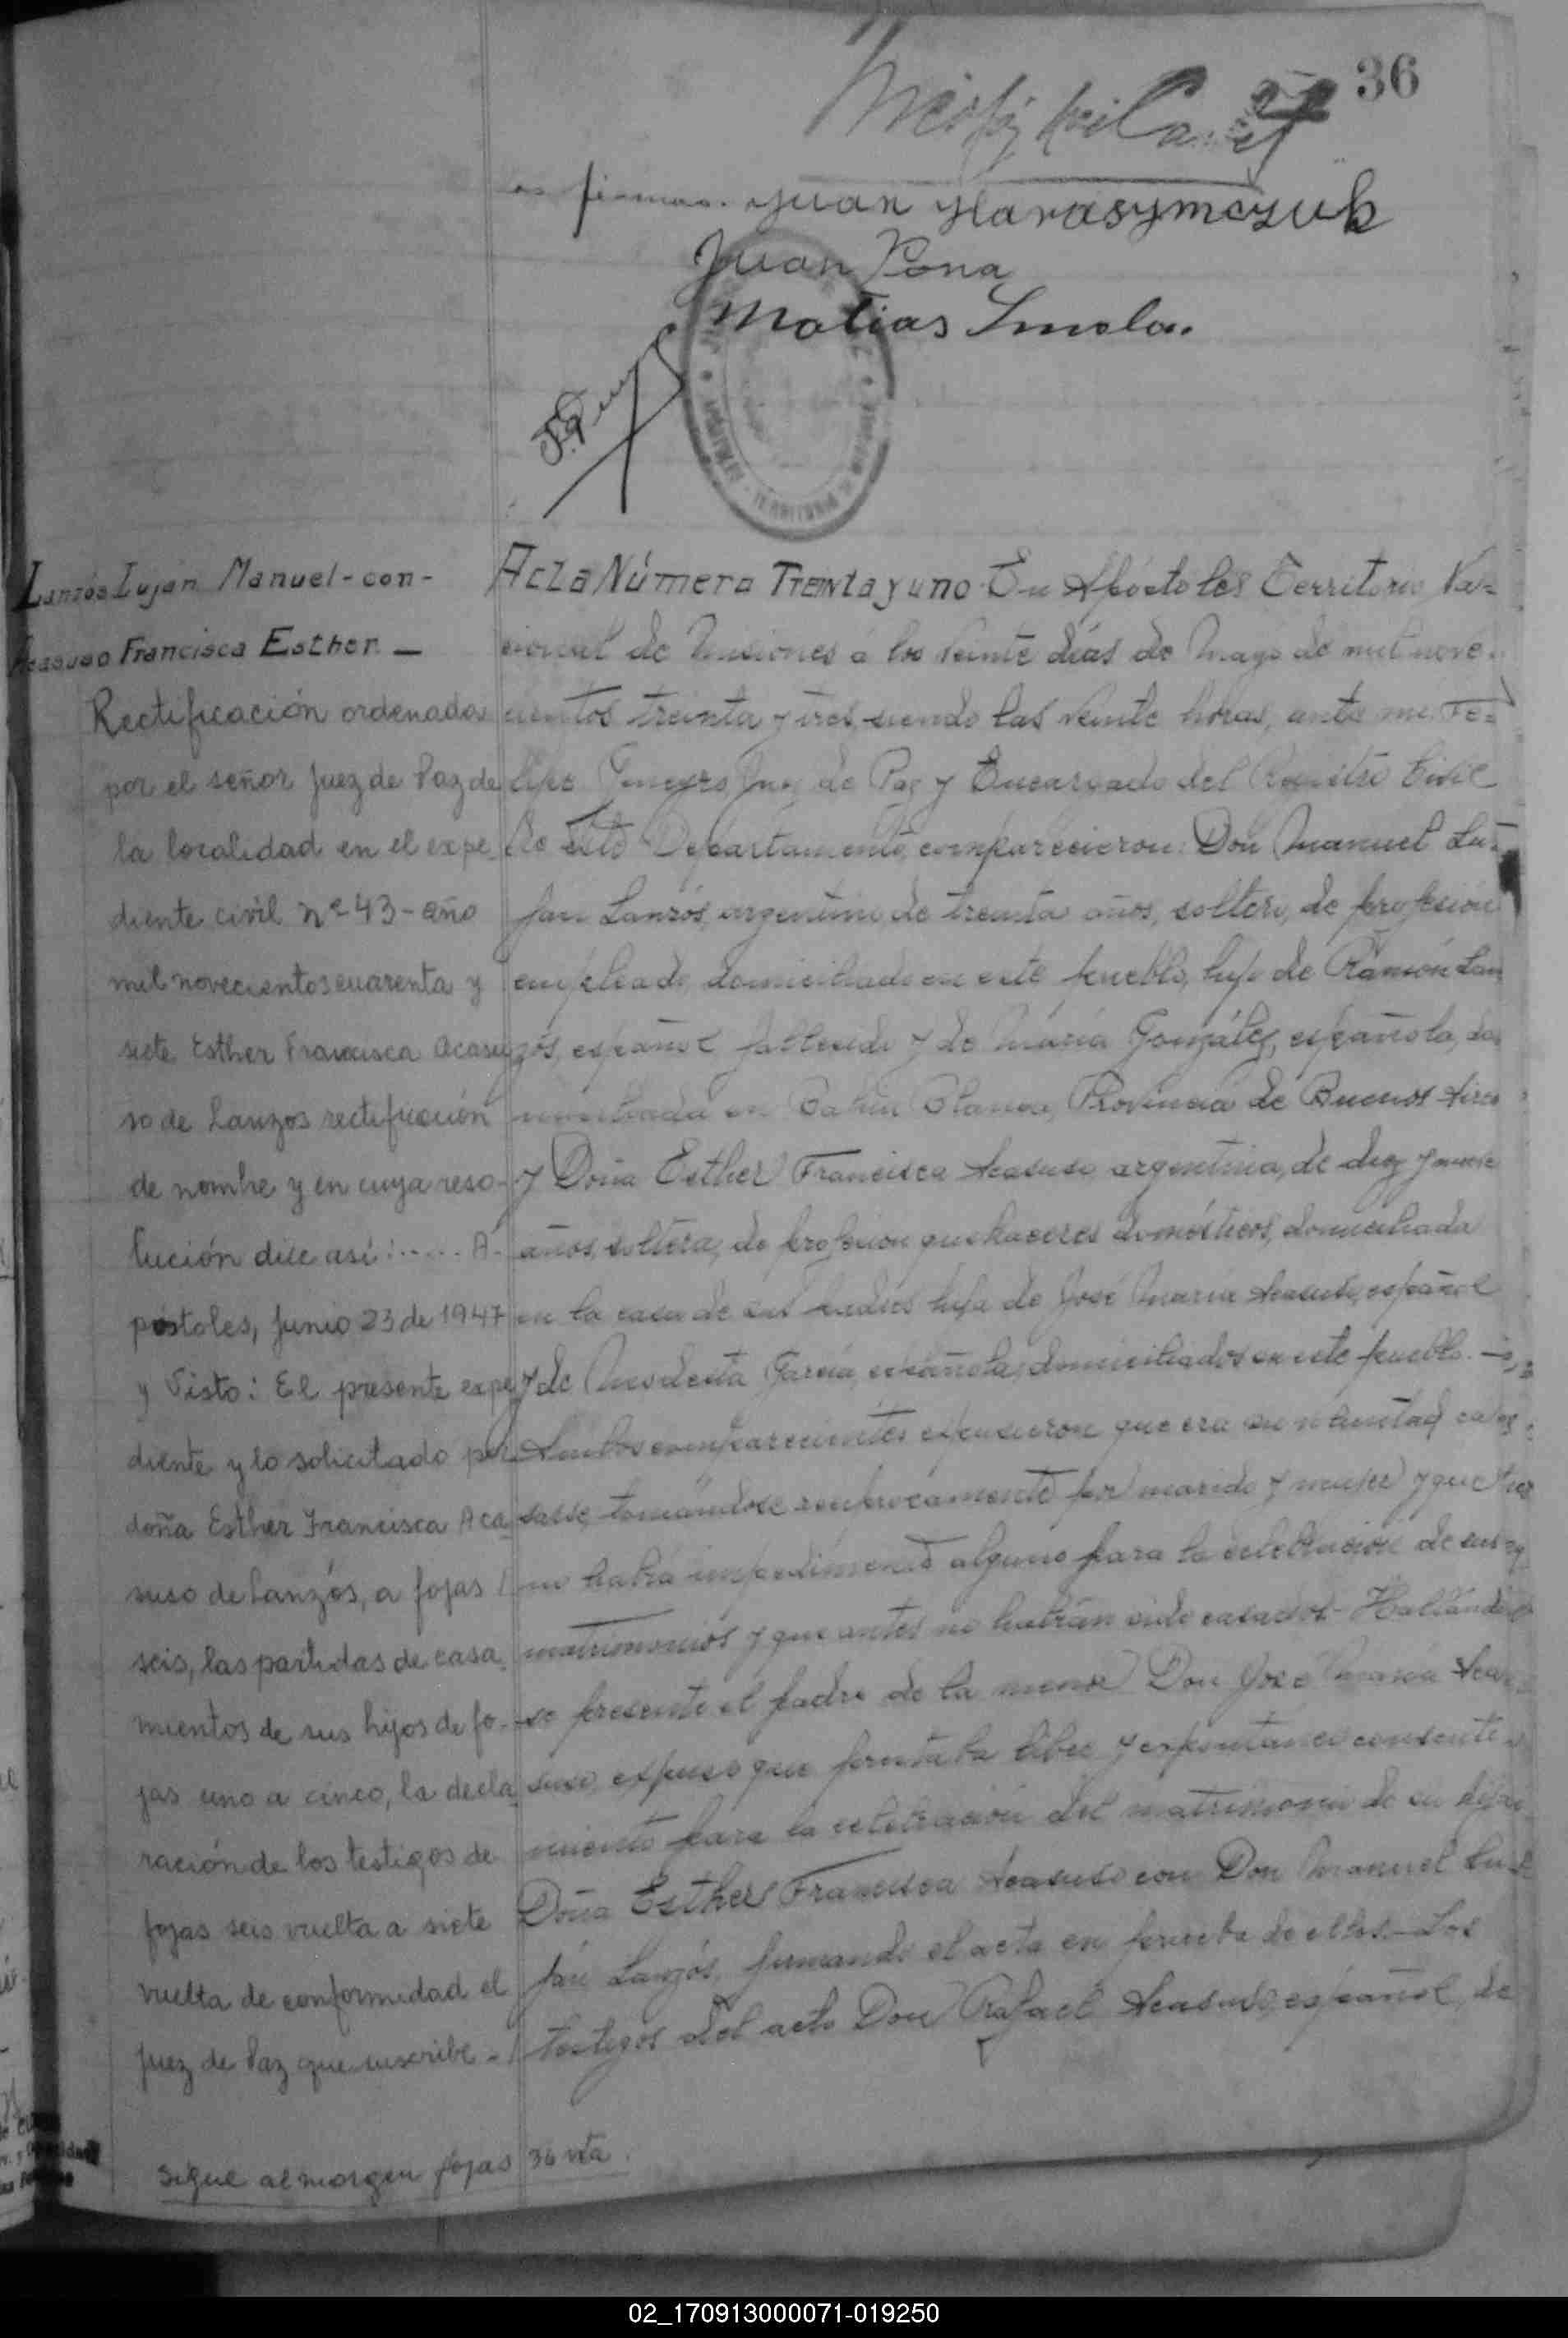 36
firman. Juan Harasymczuk
Juan Pona
Matias Smola.
TERRITORIO
Lanzós Luján Manuel-con-
Acasuso Francisca Esther. —
Rectificación ordenada
por el señor Juez de Paz de
la localidad en el expe
diente civil nº 43 - año
mil novecientos cuarenta y
siete Esther Francisca Acasu
so de Lanzos rectificación
de nombre y en cuya reso-
lución dice así: ..... A-
póstoles, Junio 23 de 1947
y Visto: El presente expe
diente y lo solicitado por
doña Esther Francisca Aca
suso de Lanzós, a fojas
seis, las partidas de casa
mientos de sus hijos de fo-
jas uno a cinco, la decla
ración de los testigos de
fojas seis vuelta a siete
vuelta de conformidad el
Juez de Paz que suscribe -
Sigue al margen fojas 36 vta.
Acta Número Treinta y uno En Apóstoles Territorio Na-
cional de Misiones á los veinte días de Mayo de mil nove-
cientos treinta y tres, siendo las veinte horas, ante mi Fe-
lipe Juez de Paz y Encargado del Registro Civil
de este Departamento, comparecieron: Don Manuel Lu-
jan Lanzós, argentino, de treinta años, soltero, de profesión
empleado, domiciliado en este pueblo, hijo de Ramón Lan
zós, español fallecido y de María González, española, do
miciliada en Bahia Blanca, Provincia de Buenos Aires
y Doña Esther Francisca Acasuso, argentina, de diez y nueve
años, soltera, de profesion quehaceres domésticos, domiciliada
en la casa de sus padres hija de José María Acasuso, español
y de Modesta García, española, domiciliados en este pueblo. —
Ambos comparecientes expusieron que era su voluntad ca
sarse, tomándose reciprocamente por marido y mujer y que
no había impedimento alguno para la celebración de sus
matrimonios y que antes no habían sido casados.- Hallando
se presente el padre de la menor Don José María Aca
suso, expuso que prestaba libre y espontáneo consenti
miento para la celebración del matrimonio de su hija
Doña Esther Francisca Acasuso con Don Manuel Lu-
ján Lanzós, firmando el acta en prueba de ellos.- Los
testigos del acto Don Rafael Acasuso, español, de
02_170913000071-019250